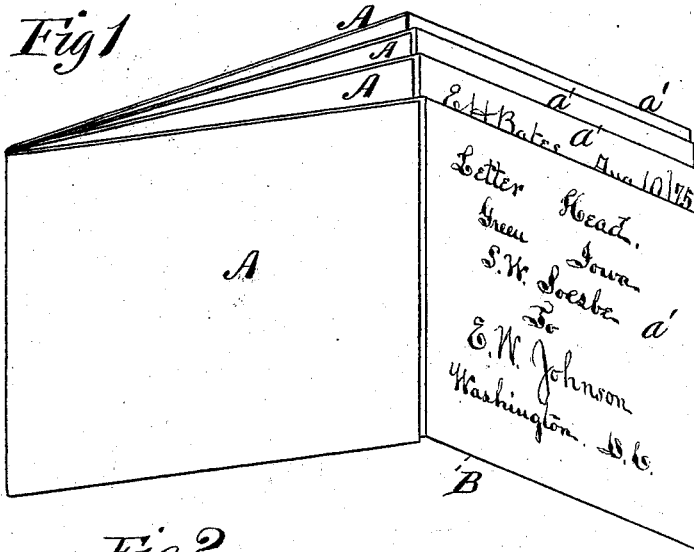 Fig 1
A
A
A
a'
a'
a'
E H Bates Aug 10 / 75
Letter Head.
Green Iowa
S. W. Soesbe
a'
To
E. W. Johnson
Washington. D. C.
A
B
Fig 2